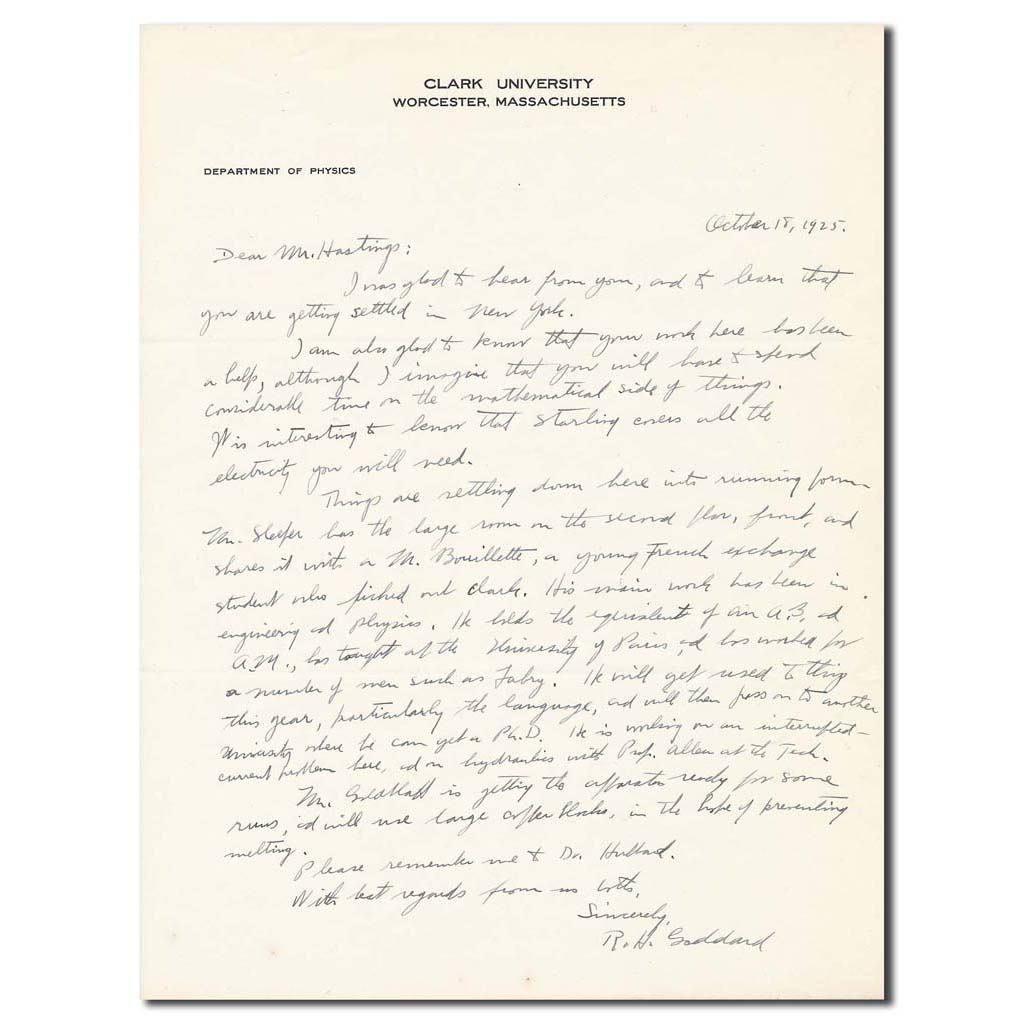 CLARK UNIVERSITY
WORCESTER, MASSACHUSETTS
DEPARTMENT OF PHYSICS
October 18, 1925.
Dear Mr. Hastings:
I was glad to hear from you, and to learn that
you are getting settled in New York.
I am also glad to know that your work here has been
a help, although I imagine that you will have to spend
considerable time on the mathematical side of things.
It is interesting to know that Starling covers all the
electricity you will need.
Things are settling down here into running form.
Mr. Sleeper has the large room on the second floor, front, and
shares it with a M. Bouillette, a young French exchange
student who picked out Clark. His main work has been in
engineering and physics. He holds the equivalent of an A.B. and
A.M., has taught at the University of Paris, and has worked for
a number of men such as Fabry. He will get used to things
this year, particularly the language, and will then pass on to another
University where he can get a Ph.D. He is working on an interrupted-
current problem here, and on hydraulics with Prof. Allen at the Tech.
Mr. is getting the apparatus ready for some
runs, and will use large copper blocks, in the hope of preventing
melting.
Please remember me to Dr. Hubbard.
With best regards from us both,
Sincerely,
R. H. Goddard